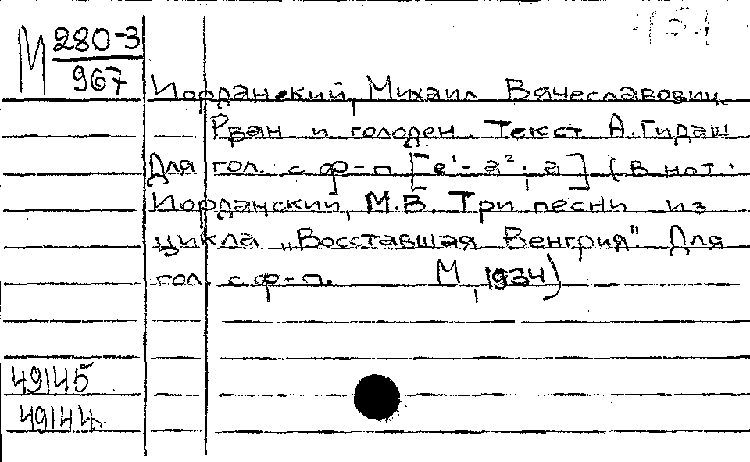 М 280-3
967
Иорданский, Михаил Вячеславович.
Рван и голоден. Текст А. Гидаш
Для гол. с ф-п [e¹-a²; a] (В нот.:
Иорданский, М.В. Три песни из
цикла „Восставшая Венгрия". Для
гол. с ф-п. М, 1934)
49145
49144